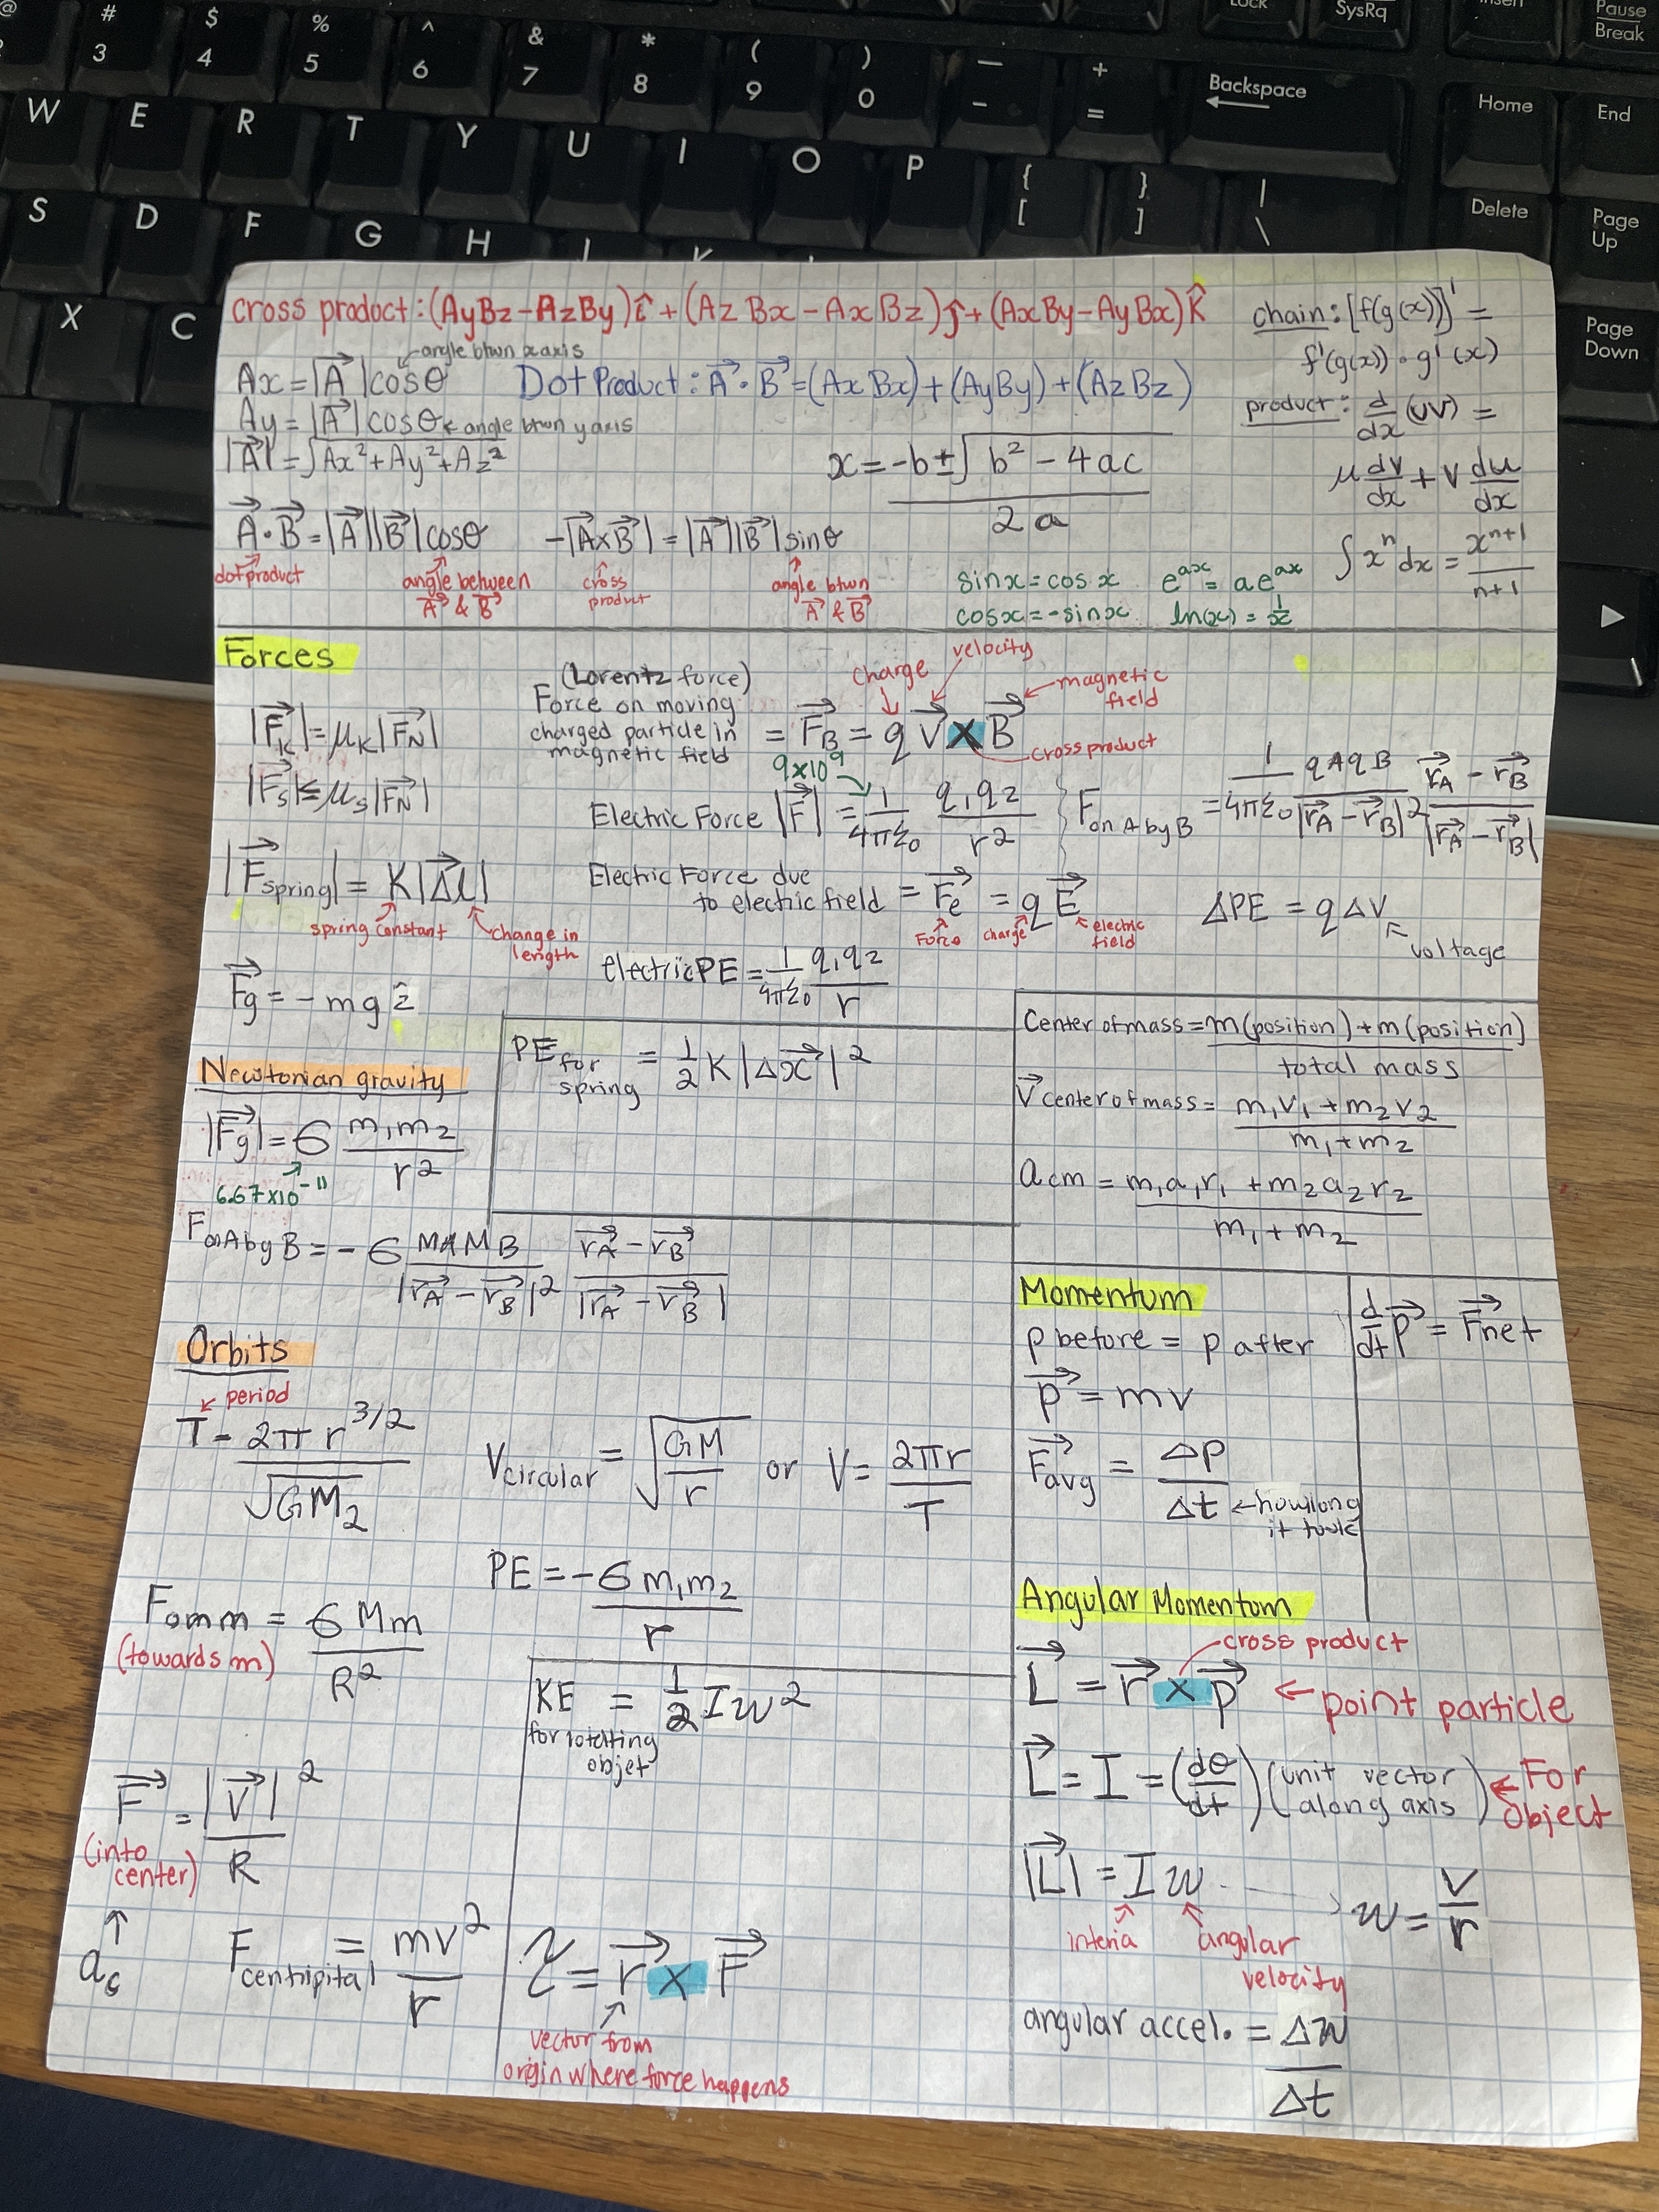 @ # $ % ^ & * ( ) — + Lock SysRq Insert Pause Break
3 4 5 6 7 8 9 0 - = Backspace Home End
W E R T Y U I O P { [ } ] | \ Delete Page Up
S D F G H J K Page Down
X C
cross product: (AyBz-AzBy)î + (AzBx-AxBz)ĵ + (AxBy-AyBx)K̂
chain: [f(g(x))]' =
f'(g(x)) • g'(x)
Ax = |A⃗| cosθ ← angle btwn x axis
Dot Product: A⃗ • B⃗ = (AxBx) + (AyBy) + (AzBz)
Ay = |A⃗| cosθ ← angle btwn y axis
product: d/dx (uv) =
u dv/dx + v du/dx
|A⃗| = √Ax²+Ay²+Az²
x = -b ± √b² - 4ac / 2a
A⃗ • B⃗ = |A⃗||B⃗| cosθ
dot product
angle between
A⃗ & B⃗
-|A⃗xB⃗| = |A⃗||B⃗| sinθ
cross
product
angle btwn
A⃗ & B⃗
∫ xⁿ dx = xⁿ⁺¹ / n+1
sinx = cosx
e^ax = ae^ax
cosx = -sinx
ln(x) = 1/x
Forces
|F⃗k| = μk |F⃗N|
|F⃗s| ≤ μs |F⃗N|
|F⃗spring| = K|Δ⃗l|
spring constant
change in
length
F⃗g = -mg ẑ
(Lorentz force)
Force on moving
charged particle in
magnetic field
= F⃗B = q V⃗ X B⃗
charge
velocity
magnetic
field
cross product
9x10⁹
Electric Force |F⃗| = 1/4πε0 q1q2/r²
F on A by B = 1/4πε0 qAqB/|r⃗A - r⃗B|² r⃗A - r⃗B/|r⃗A - r⃗B|
Electric Force due
to electric field = F⃗e = qE⃗
Force
charge
electric
field
ΔPE = qΔV
voltage
electric PE = 1/4πε0 q1q2/r
Newtonian gravity
|F⃗g| = G m1m2/r²
6.67x10⁻¹¹
F on A by B = -G MAMB/|r⃗A - r⃗B|² r⃗A - r⃗B/|r⃗A - r⃗B|
PE for spring = 1/2 K|Δx⃗|²
Center of mass = m(position) + m(position) / total mass
V⃗ center of mass = m1v1 + m2v2 / m1+m2
acm = m1a1r1 + m2a2r2 / m1+m2
Orbits
period
T = 2πr^3/2 / √GM2
Vcircular = √GM/r or V = 2πr/T
Fomm = GMm/R²
(towards m)
PE = -Gm1m2/r
F⃗ = |V⃗|²/R
(into
center)
ac
Fcentripital = mv²/r
KE = 1/2 Iw²
for rotating
objet
τ = r⃗ X F⃗
vector from
origin where force happens
Momentum
p before = p after
p⃗ = mv
F⃗avg = Δp/Δt ← how long
it took
d/dt p⃗ = F⃗net
Angular Momentum
cross product
L⃗ = r⃗ x p⃗ ← point particle
L⃗ = I = (dθ/dt) (unit vector
along axis) ← For
object
|L⃗| = Iw
interia
angular
velocity
w = v/r
angular accel. = Δw/Δt